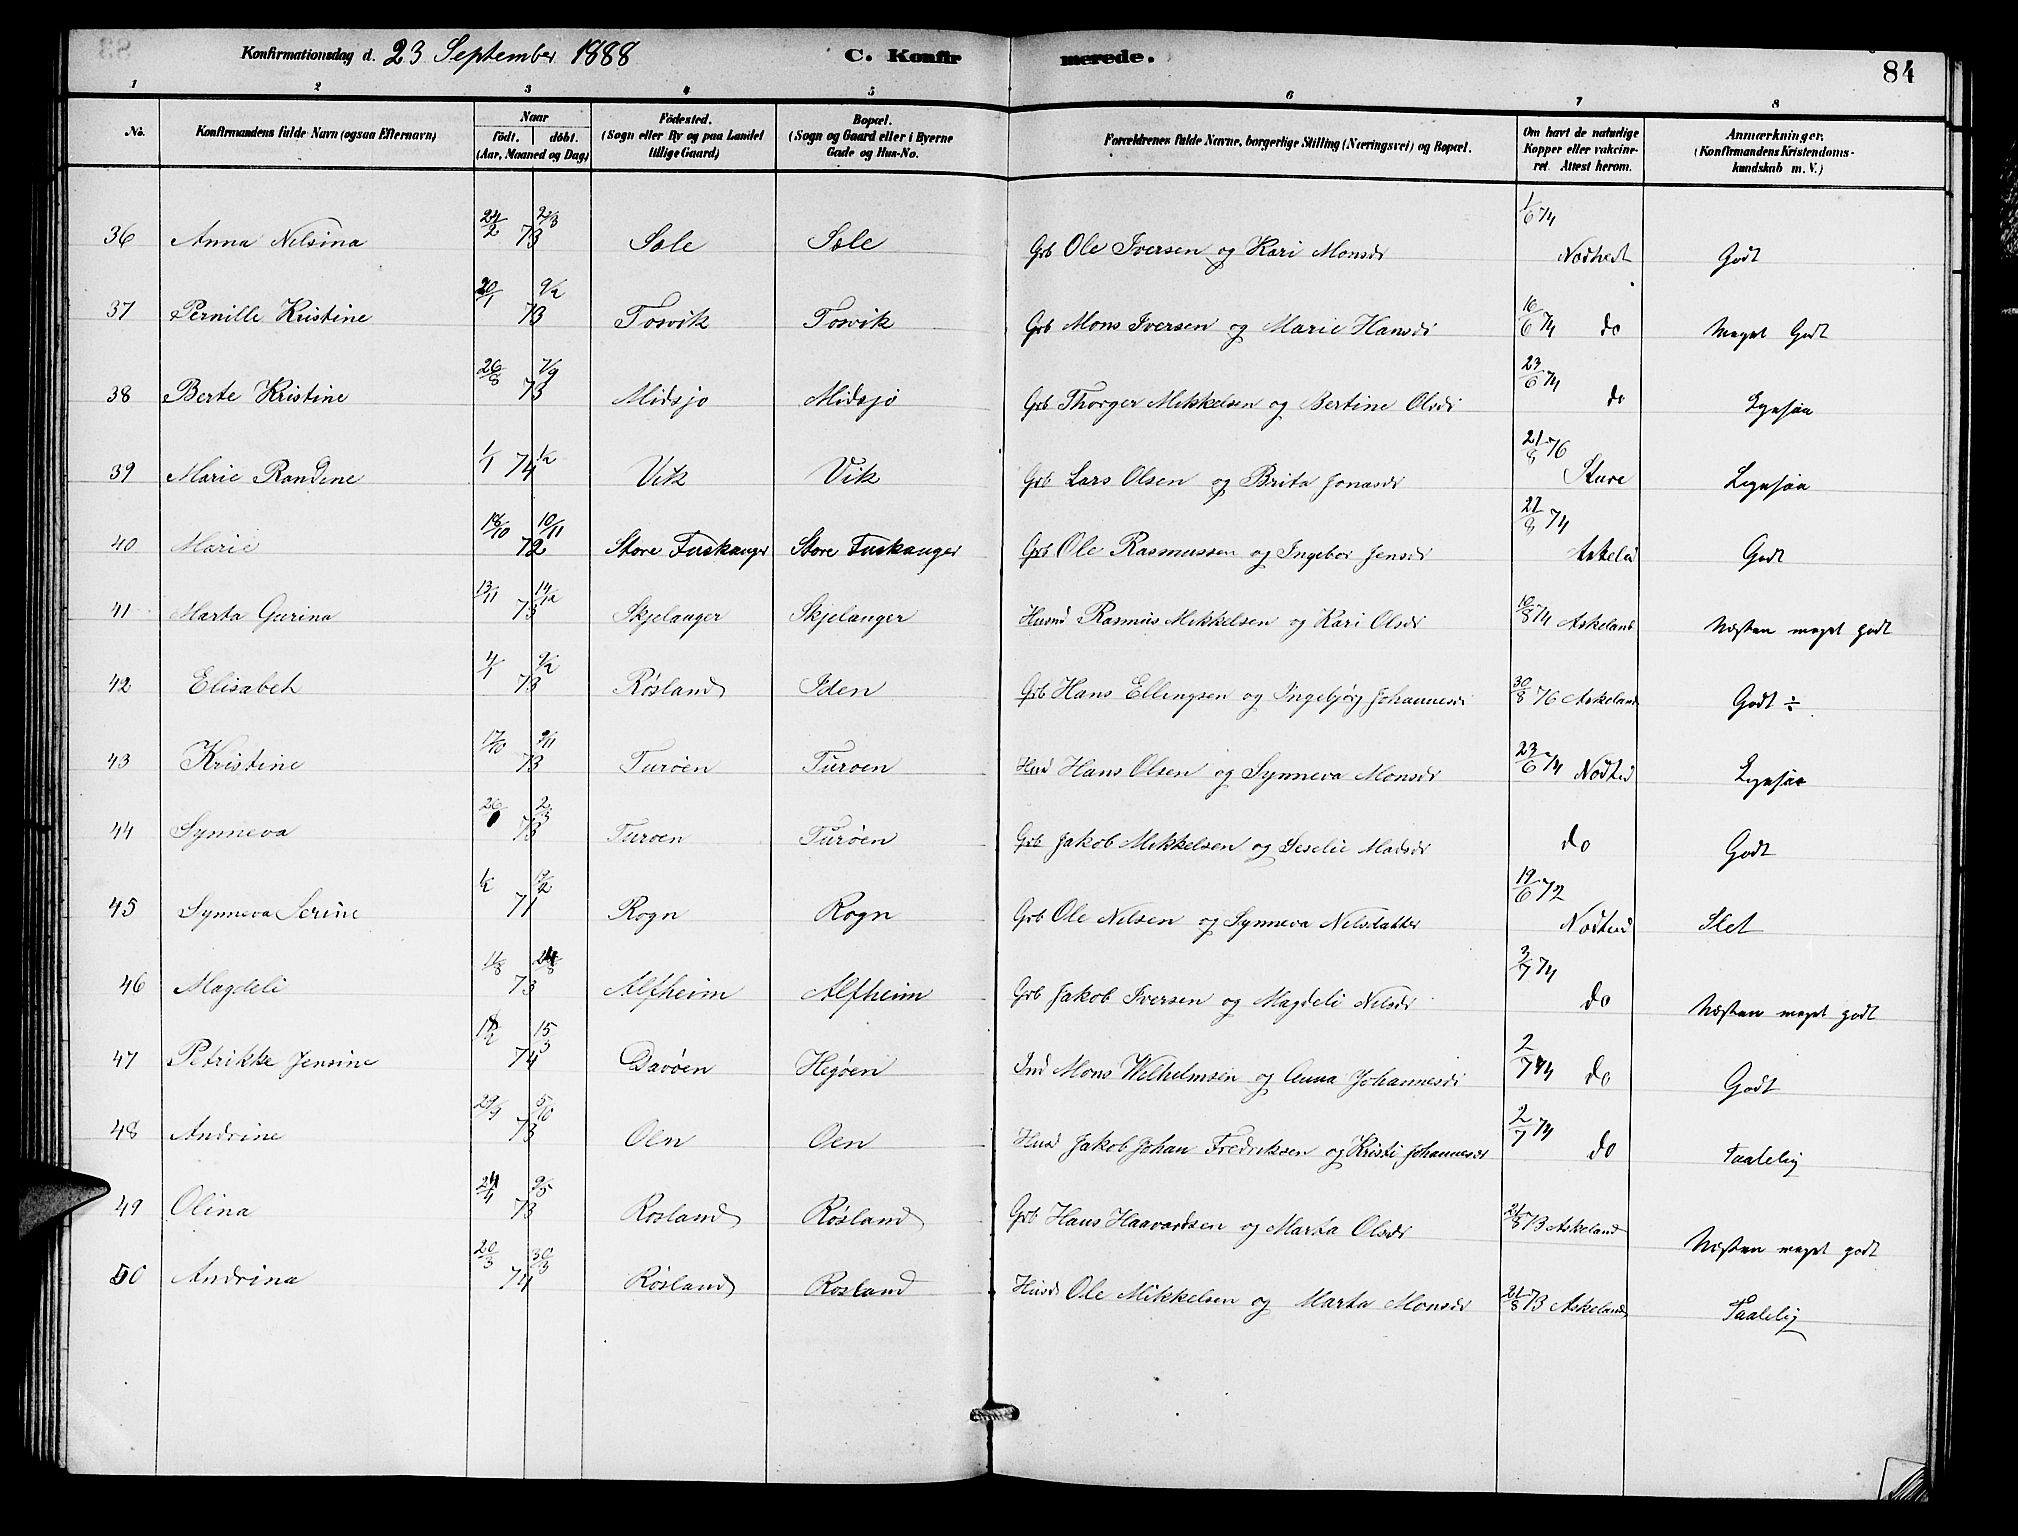 Konfirmationsdag d. 23 September 1888 C. Konfirmerede. 84
1 2 3 4 5 6 7 8
No. Konfirmandens fulde Navn (ogsaa Efternavn) Naar födt. döbt. (Aar, Maaned og Dag) Födested. (Sogn eller By og paa Landet tillige Gaard) Bopæl. (Sogn og Gaard eller i Byerne Gade og Hus-No. Forældrenes fulde Navne, borgerlige Stilling (Næringsvei) og Bopæl. Om havt de naturlige Kopper eller vakcineret. Attest herom. Anmærkninger. (Konfirmandens Kristendomskundskab m. V.)
36 Anna Nelsina 24/2 73 Sole Sole Grb Ole Iversen og Kari Monsdr 1/6 74 Godt
37 Pernille Kristine 20/1 9/2 73 Tosvik Tosvik Grb Mons Iversen og Marie Hansdr 16/6 74 do Meget Godt
38 Berte Kristine 26/8 7/9 73 Midsjo Midsjo Grb Thorger Mikkelsen og Bertine Olsdr 23/6 74 do
39 Marie Randine 1/1 1/2 74 Vik Vik Grb Lars Olsen og Brita Jonasdr 21/8 76 Sture
40 Marie 18/10 10/11 72 Store Fuskanger Store Fuskanger Grb Ole Rasmussen og Ingebor Jensdr 21/8 74 Godt
41 Marta Gurina 13/11 14/12 73 Skjelanger Skjelanger Husmd Rasmus Mikkelsen og Kari Olsdr 10/8 74 Askeland Næsten meget godt
42 Elisabet 4/1 9/2 73 Røsland Iden Grb Hans Ellingsen og Ingebjørg Johannesdr 30/8 76 Askeland Godt ÷
43 Kristine 17/10 9/11 73 Turøen Turoen Husd Hans Olsen og Synneva Monsdr 23/6 74
44 Synneva 2/3 73 Turoen Turøen Grb Jakob Mikkelsen og Seselie Madsdr do Godt
45 Synneva Serine 1/2 17/2 71 Rogn Rogn Grb Ole Nelsen og Synneva Nelsdatter 19/6 72 Slet
46 Magdeli 11/8 24/8 73 Alfheim Alfheim Grb Jakob Iversen og Magdeli Nelsdr 3/7 74 do Næsten meget godt
47 Petrikke Jensine 18/2 15/3 74 Davøen Hegøen Ind Mons Wilhelmsen og Anna Johannesdr 2/7 74 do Godt
48 Andrine 29/9 5/10 73 Oen Oen Husd Jakob Johan Fredriksen og Kristi Johannesdr 2/7 74 do Taalelig
49 Olina 24/4 9/5 73 Rosland Røsland Grb Hans Haavardsen og Marta Olsdr 21/8 73 Askeland Næsten meget godt
50 Andrina 20/3 30/3 74 Røsland Rosland Husd Ole Mikkelsen og Marta Monsdr 21/8 73 Askeland Taalelig